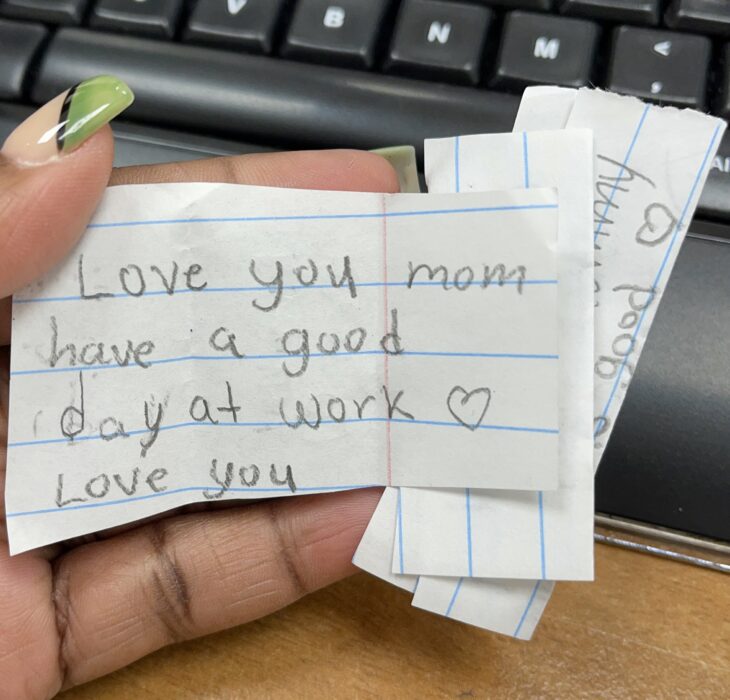 V B N M <
,
Love you mom
have a good
day at work ♡
Love you
♡ good